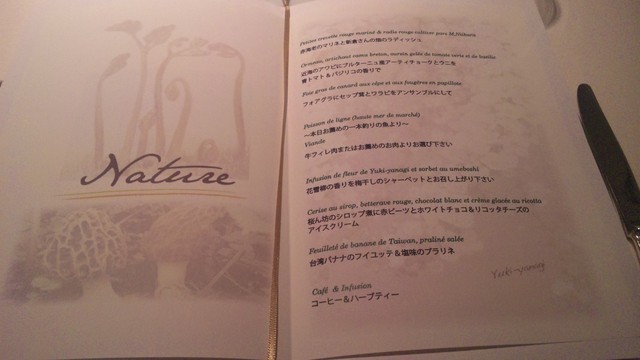 Nature
Petite crevette rouge mariné & radis rouge cultiver pars M.Niikura
赤海老のマリネと新倉さんの畑のラディッシュ
Ormeau, artichaut camu breton, oursin gelée de tomate verte et de basilic
近海のアワビにブルターニュ産アーティチョークとウニを
青トマト&バジリコの香りで
Foie gras de canard aux cèpe et aux fougères en papillote
フォアグラにセップ茸とワラビをアンサンブルにして
Poisson de ligne (haute mer de marché)
～本日お薦めの一本釣りの魚より～
Viande
牛フィレ肉またはお薦めのお肉よりお選び下さい
Infusion de fleur de Yuki-yanagi et sorbet au umeboshi
花雪柳の香りを梅干しのシャーベットとお召し上がり下さい
Cerise au sirop, betterave rouge, chocolat blanc et crème glacée au ricotta
桜ん坊のシロップ煮に赤ビーツとホワイトチョコ&リコッタチーズの
アイスクリーム
Feuilleté de banane de Taiwan, praliné salée
台湾バナナのフイユッテ&塩味のプラリネ
Café & Infusion
コーヒー&ハーブティー
Yuki-yanagi